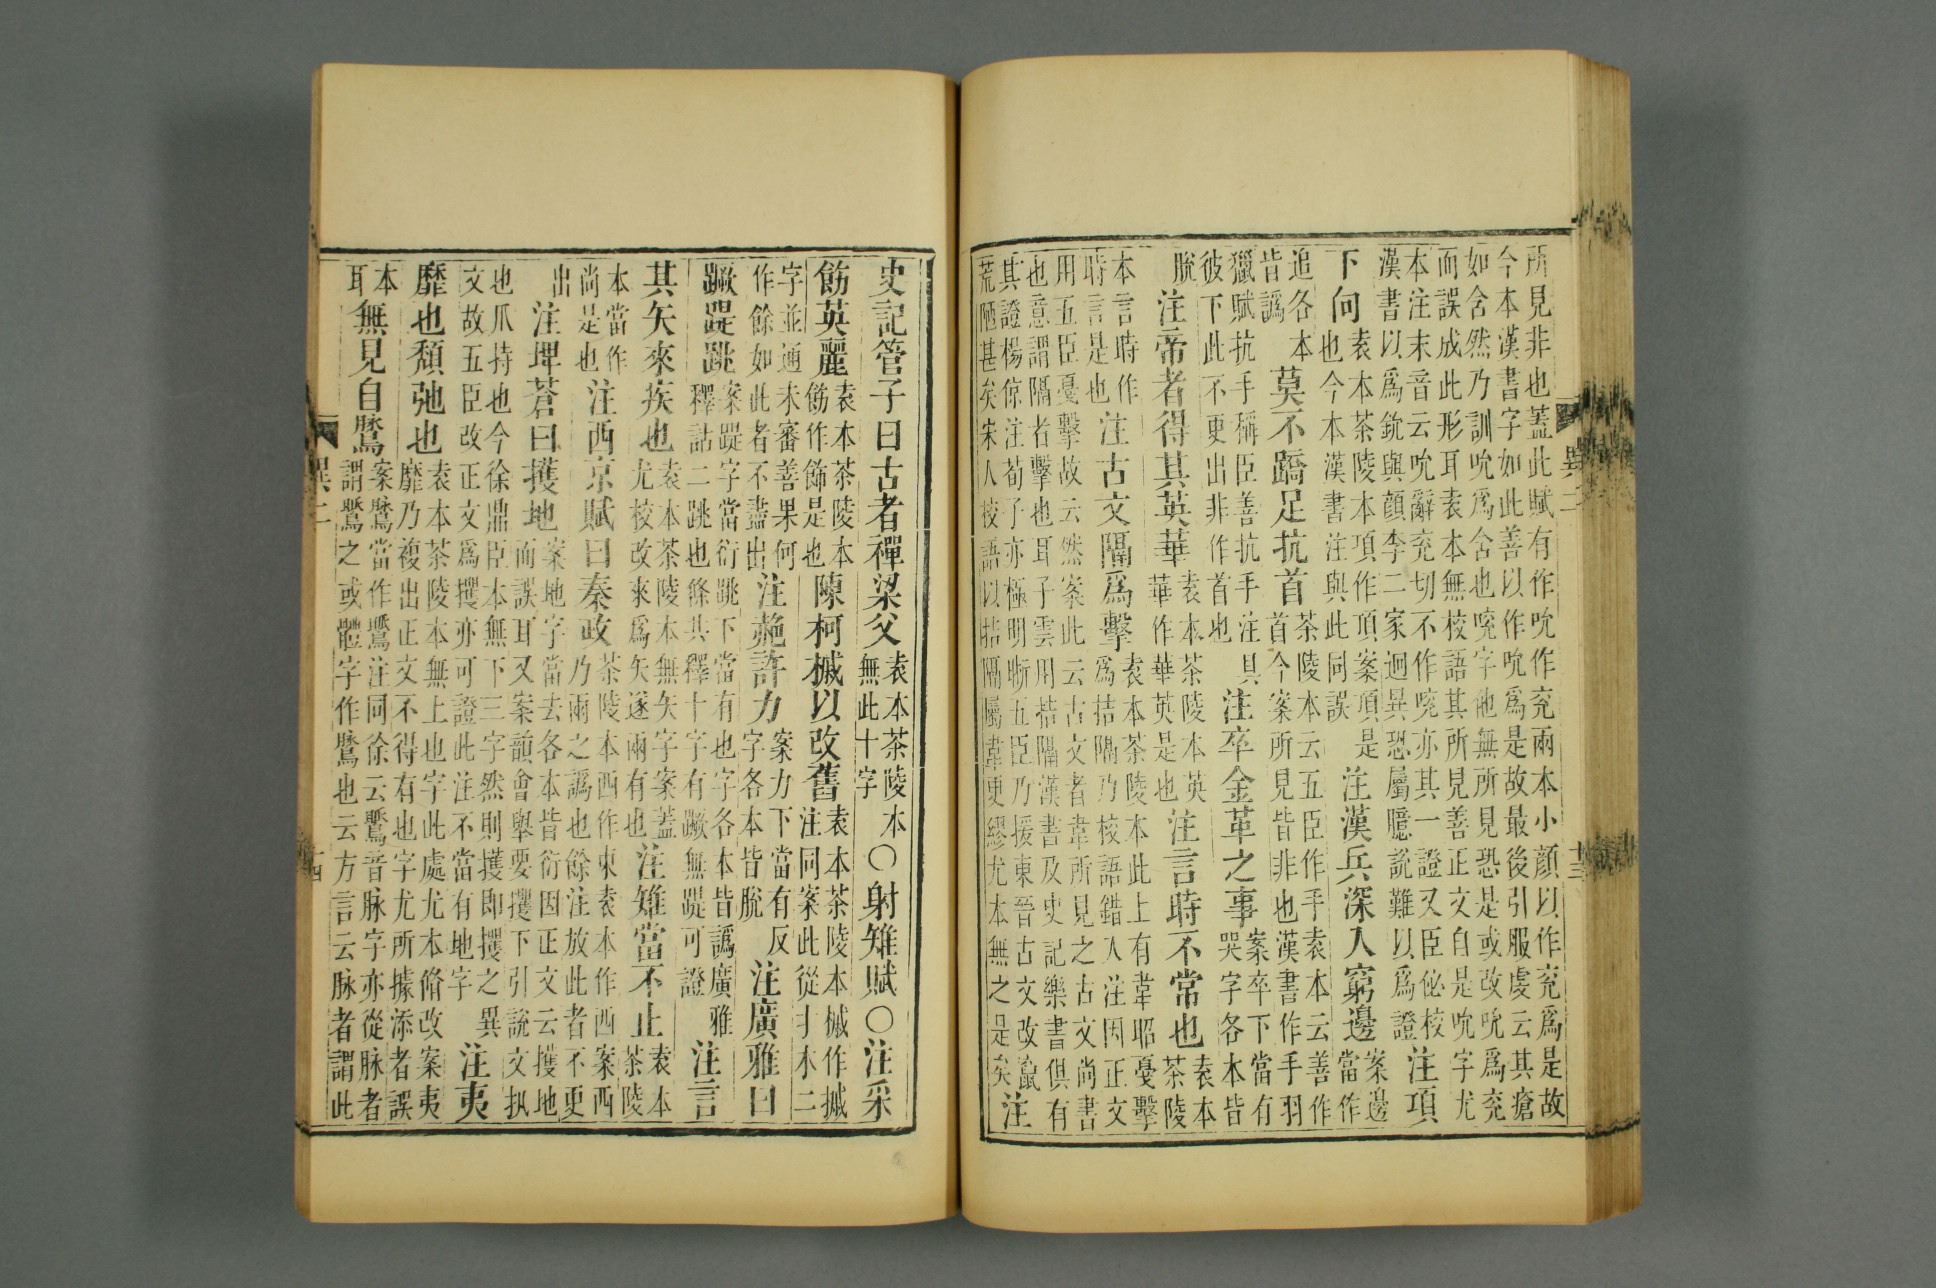 所見非也蓋此賦有作吮作兖兩本小顔以作兖爲是故
今本漢書字如此善以作吮爲是故最後引服虔云其瘡
如含然乃訓吮爲含也唍字他無所見恐是或改吮爲兖
而誤成此形耳袁本無校語其所見善正文自是吮字尤
本注末音云吮辭兖切不作唍亦其一證又臣佖校
漢書以爲銃與顔李二家迥異恐屬臆說難以爲證
注項
下向
袁本茶陵本項作項案項是
也今本漢書注與此同誤
注漢兵深入窮邊
案邊
當作
追各本
皆譌
莫不蹻足抗首
茶陵本云五臣作手袁本云善作
首今案所見皆非也漢書作手羽
獵賦抗手稱臣善抗手注具
彼下此不更出非作首也
注卒金革之事
案卒下當有
哭字各本皆
脫
注帝者得其英華
袁本茶陵本英
華作華英是也
注言時不常也
袁本
茶陵
本言時作
時言是也
注古文隔爲擊
袁本茶陵本此上有韋昭憂擊
爲拮隔乃校語錯入注因正文
用五臣憂擊故云然案此云古文者韋所見之古文尚書
也意謂隔者擊也耳子雲用拮隔漢書及史記樂書俱有
其證楊倞注荀子亦極明晰五臣乃援東晉古文改竄
荒陋甚矣宋人校語以拮隔屬韋更繆尤本無之是矣
注
異二
十三
史記管子曰古者禪梁父
袁本茶陵本
無此十字
○射雉賦○注采
飭英麗
袁本茶陵本
飭作飾是也
陳柯搣以改舊
袁本茶陵本搣作摵
注同案此從才木二
字並通未審善果何
作餘如此者不盡出
注䞓許力
案力下當有反
字各本皆脫
注廣雅曰
蹶踶跳
案踶字當衍跳下當有也字各本皆譌廣雅
釋詁二跳也條其釋十字有蹶無踶可證
注言
其矢來疾也
袁本茶陵本無矢字案蓋
尤校改來爲矢遂兩有也
注雉當不止
袁本
茶陵
本當作
尚是也
注西京賦曰秦政
茶陵本西作東袁本作西案西
乃兩之譌也餘注放此者不更
出
注埤蒼曰擭地
案地字當去各本皆衍因正文云擭地
而誤耳又案韻會舉要攫下引說文扖
也爪持也今徐鼎臣本無下三字然則擭即攫之異
文故五臣改正文爲攫亦可證此注不當有地字
注夷
靡也頽弛也
袁本茶陵本無上也字此處尤本脩改案夷
靡乃複出正文不得有也字尤所據添者誤
本
耳
無見自鷩
案鷩當作鷩注同徐云鷩音脉字亦從脉者
謂鷩之或體字作鷩也云方言云脉者謂此
異二
十四